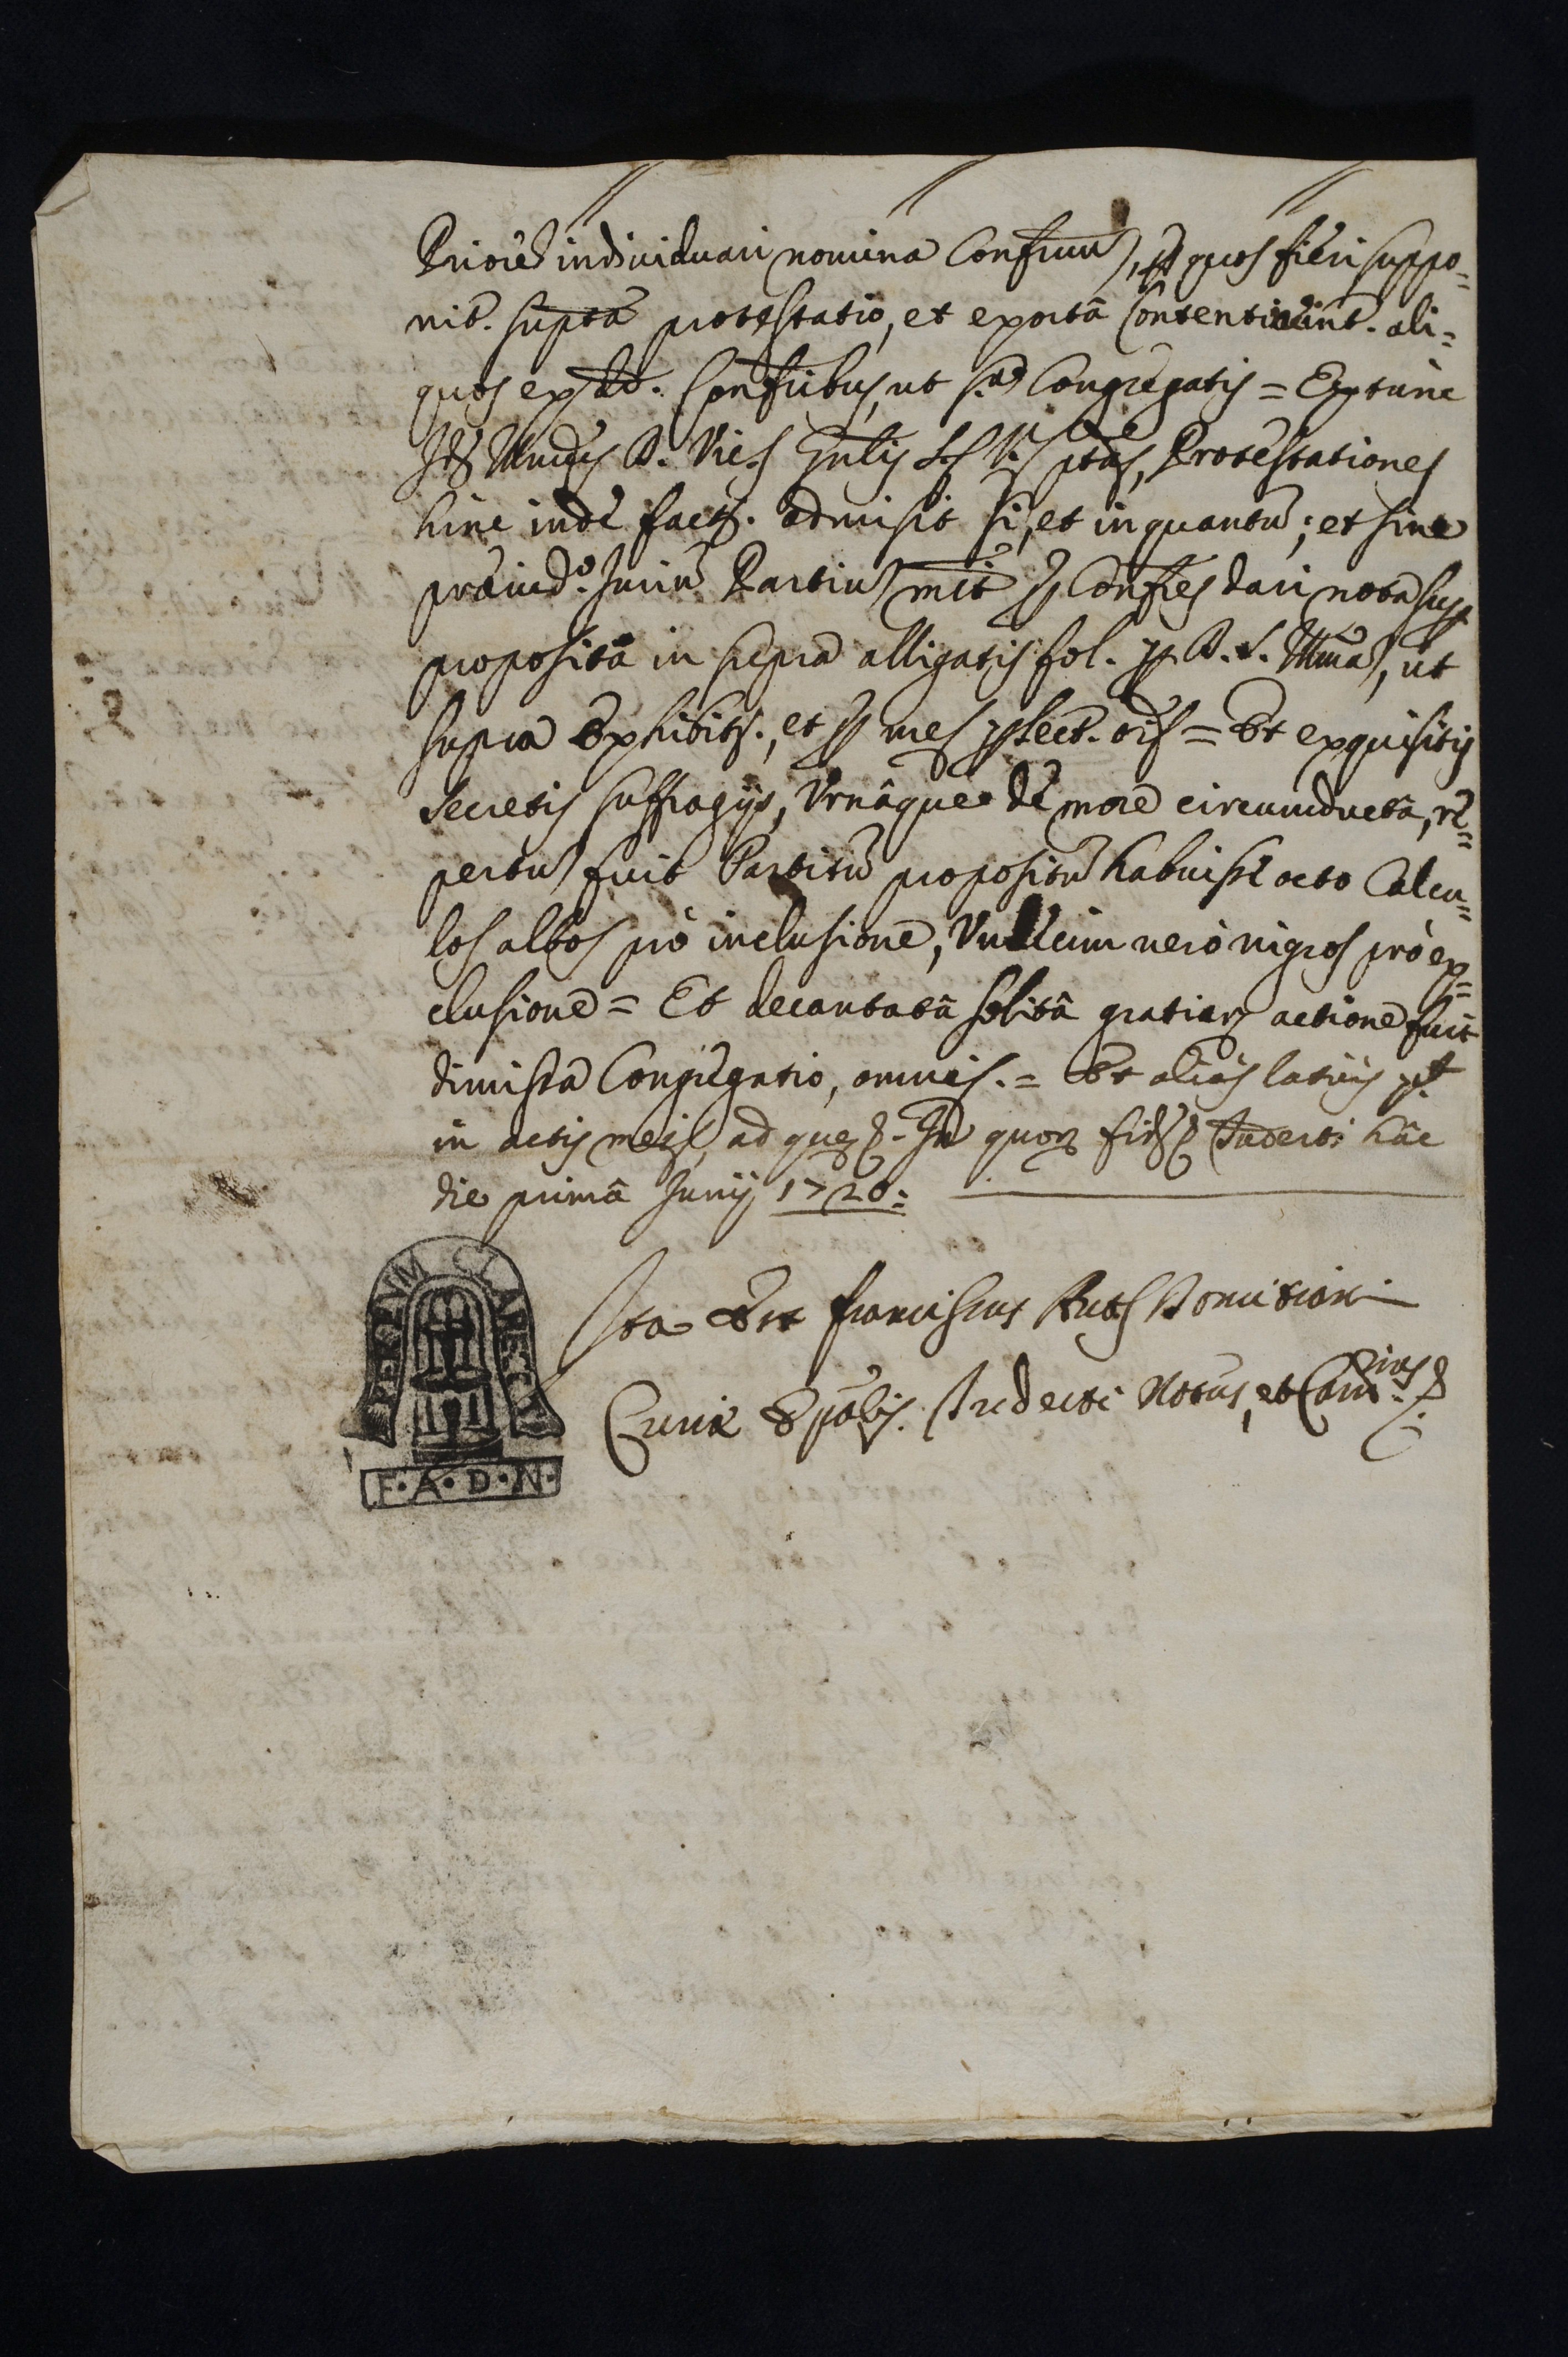 Priores individuari nomina Confrum, p quos fieri suppo=
nit. suptâ protestatio, et exortâ Contentiõe int. ali=
quos ex dd. Confribus, ut s.ª Congregatis = Ex tunc
Illmus D. Vic.s Gnlis ptas, Protestationes
hinc inde fact. admisit si, et in quantũ; et sine
præiud.º Jurium Partium, mdt p Confres dari vota sup
propositâ in supra alligatis fol. p D. S. Illmã, ut
supra exhibit., et p me plect. = Et exquisitis
secretis suffragijs, Vrnâque de more circumductâ, re=
pertum fuit Partitũ propositũ habuisse octo Calcu=
los albos prò inclusione, Vndecim verò nigros prò ex=
clusione = Et decantatâ solitâ gratiarum actione fuit
dimissa Congregatio, omnis. = Et alias latius pt
in actis meis, ad quæ &. In quorum fidem & Tuderti hâc
die primâ Junij 1720:
Ita Est Franciscus Ant.s Domitian
Curiæ Epalis Tuderti Notus, et Canrius &
CLARESCAM
F·A·D·N·